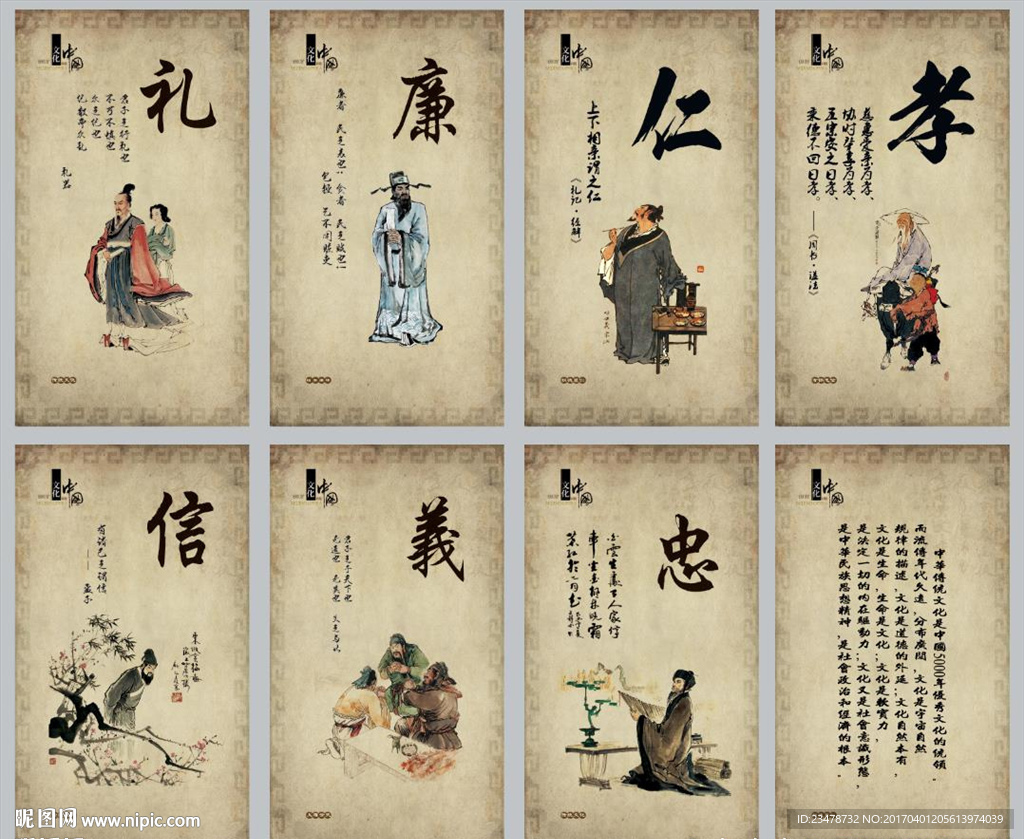 文化
中国
礼
君子之行礼也
不可不慎也
众之纪也
纪散而众乱
礼器
文化
中国
廉
廉者 民之表也
贪者 民之贼也
包拯
文化
中国
仁
上下相亲谓之仁
《礼记·经解》
文化
中国
孝
慈惠爱亲为孝、
协时肇享为孝、
五宗安之曰孝、
秉德不回曰孝。
——《周书·谥法》
文化
中国
信
有诸己之谓信
—— 孟子
文化
中国
義
君子之于天下也
无适也 无莫也 义之与比
文化
中国
忠
文化
中国
中華傳統文化是中國5000年優秀文化的統領，
而流傳年代久遠，分布廣闊，文化是宇宙自然
規律的描述，文化是道德的外延；文化自然本有，
文化是生命，生命是文化；文化是軟實力，
是決定一切的内在驅動力；文化又是社會意識形態，
是中華民族思想精神，是社會政治和經濟的根本。
昵图网 www.nipic.com
ID:23478732 NO:20170401205613974039